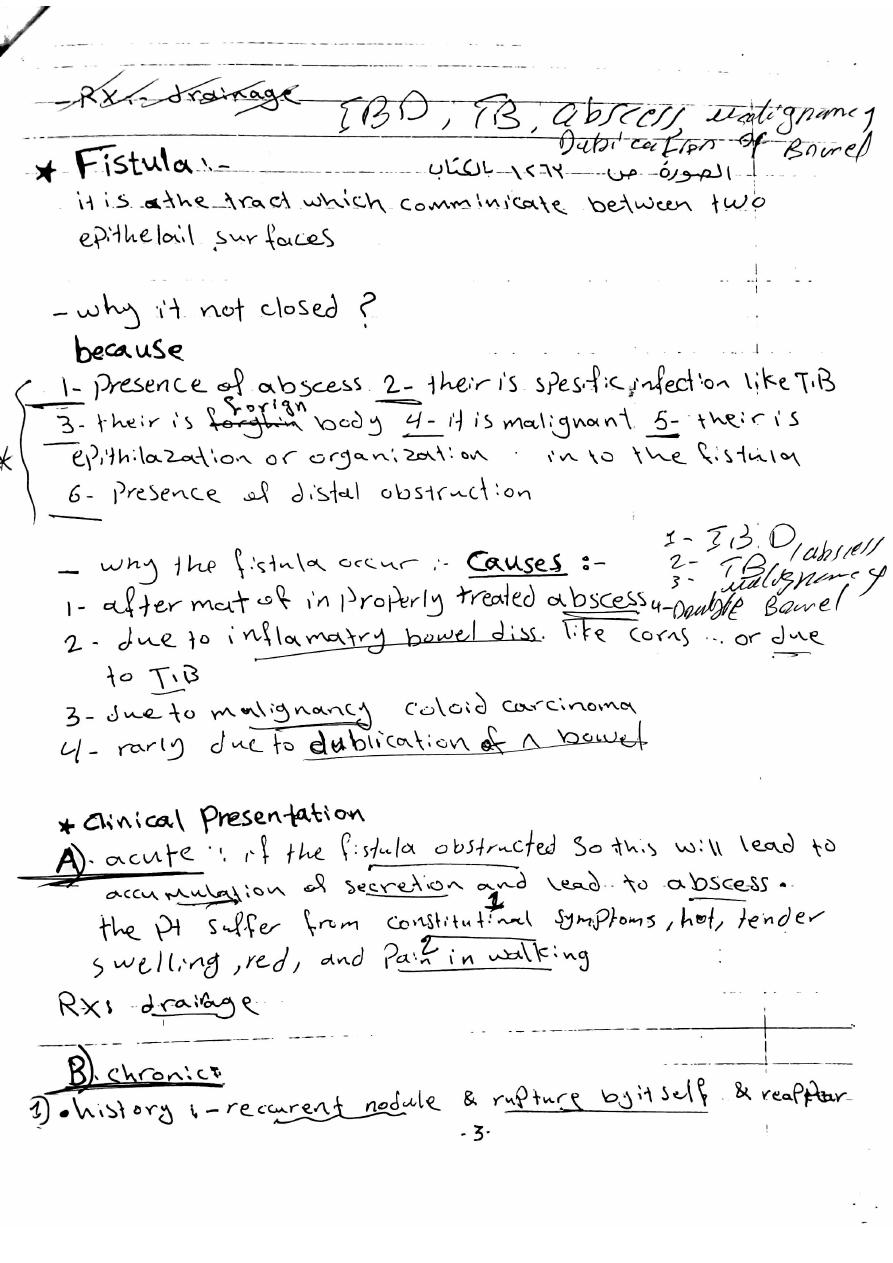 -Rx:- drainage
IBD, TB, abscess, malignancy
Dublication of Bowel
* Fistula:-
الصورة ص ١٢٦٢ بالكتاب
it is a the tract which comminicate between two
epithelail surfaces
- why it not closed ?
because
1- Presence of abscess 2- their is spesific infection like T.B
3- their is forghin forign body 4- it is malignant 5- their is
epithilazation or organization in to the fistula
6- Presence of distal obstruction
- why the fistula occur :- Causes :-
1- I.B.D
2- TB / abscess
3- malignancy
4- Double Bowel
1- after mat of in properly treated abscess
2- due to inflamatry bowel diss. like corns ... or due
to T.B
3- due to malignancy coloid carcinoma
4- rarly due to dublication of A bowel
* Clinical Presentation
A). acute :: if the fistula obstructed So this will lead to
accumulation of secretion and lead to abscess.
the pt suffer from constitutinal 1 symptoms, hot, tender
swelling, red, and Pain 2 in walking
Rx: drainage
B). chronic:
1) . history :- reccurent nodule & rupture by it self & reappear
-3-